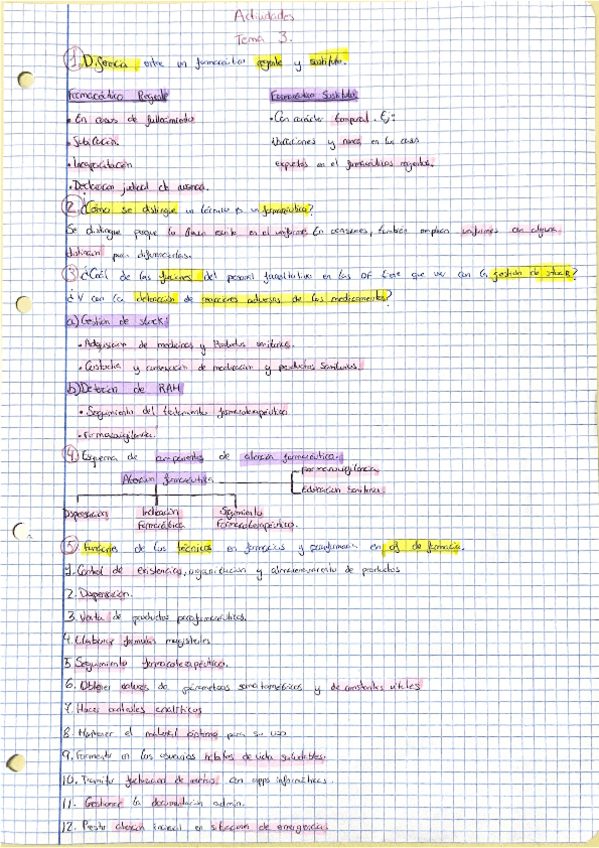 Actividades
Tema 3.
1. Diferencia entre un farmacéutico regente y sustituto.
Farmacéutico Regente
Farmacéutico Sustituto
• En casos de fallecimiento
• Con carácter temporal. Ej:
• Jubilación
Vacaciones y nunca en los casos
• Incapacitación
expuestos en el farmacéutico regente.
• Declaración judicial de ausencia.
2. ¿Cómo se distingue un técnico de un farmacéutico?
Se distingue porque lo llevan escrito en el uniforme. En ocasiones, también emplean uniformes con alguna
distinción para diferenciarlos.
3. ¿Cuál de las funciones del personal facultativo en las OF tiene que ver con la gestión de stock?
¿Y con la detección de reacciones adversas de los medicamentos?
a) Gestión de stocks
• Adquisición de medicinas y Productos sanitarios.
• Custodia y conservación de medicación y productos sanitarios.
b) Detección de RAM
• Seguimiento del tratamiento farmacoterapéutico
• Farmacovigilancia.
4. Esquema de componentes de atención farmacéutica.
Atención farmacéutica
Farmacovigilancia
Educación Sanitaria
Dispensación
Indicación
Farmacéutica
Seguimiento
Farmacoterapéutico.
5. Funciones de los técnicos en farmacia y parafarmacia en of de farmacia.
1. Control de existencias, organización y almacenamiento de productos
2. Dispensación.
3. Venta de productos parafarmacéuticos.
4. Elaborar fórmulas magistrales
5. Seguimiento farmacoterapéutico.
6. Obtener valores de parámetros somatométricos y de constantes vitales
7. Hacer controles analíticos
8. Mantener el material óptimo para su uso
9. Fomento en los usuarios hábitos de vida saludables.
10. Tramita facturación de recetas con apps informáticas.
11. Gestionar la documentación admin.
12. Presta atención inicial en situación de emergencia.